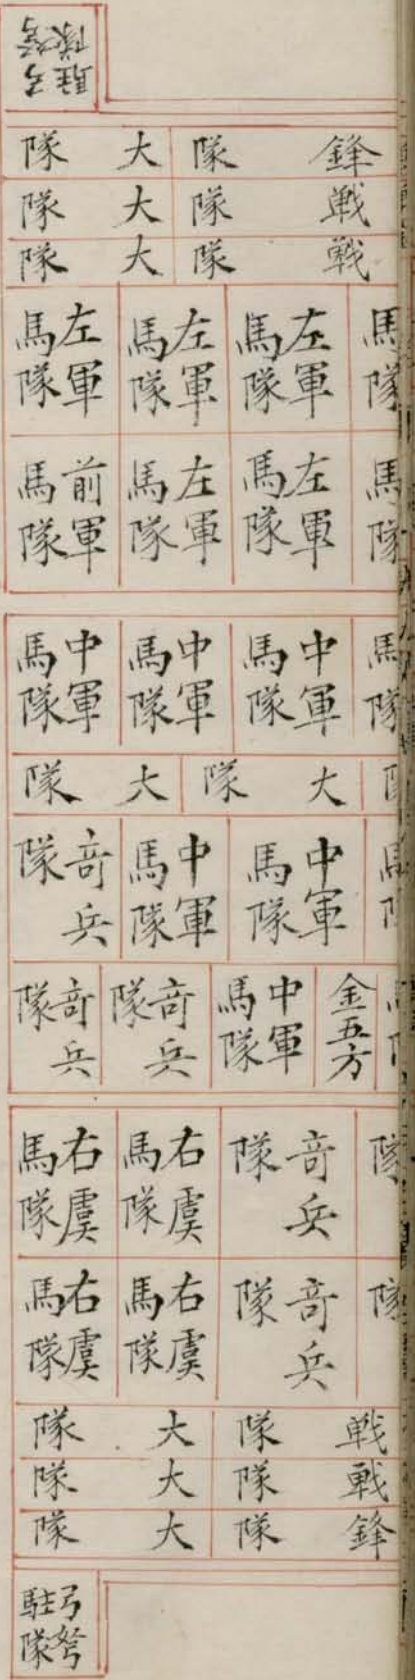 弓弩駐隊
鋒隊 大隊
戦隊 大隊
戦隊 大隊
馬隊 左軍馬隊 左軍馬隊 左軍馬隊
馬隊 左軍馬隊 左軍馬隊 前軍馬隊
馬隊 中軍馬隊 中軍馬隊 中軍馬隊
大隊 大隊
中軍馬隊 中軍馬隊 竒兵隊
金五方 中軍馬隊 竒兵隊 竒兵隊
隊 竒兵隊 右虞馬隊 右虞馬隊
隊 竒兵隊 右虞馬隊 右虞馬隊
戦隊 大隊
戦隊 大隊
鋒隊 大隊
弓弩駐隊